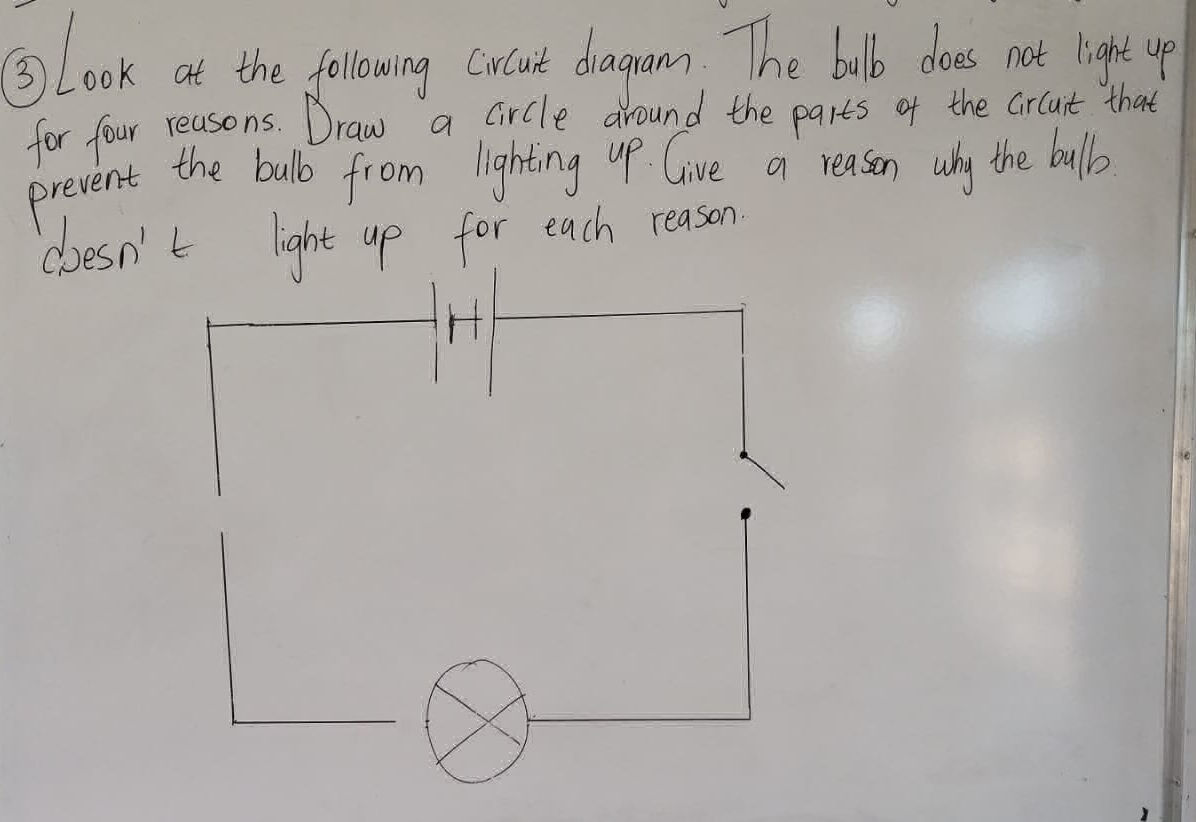 ③ Look at the following Circuit diagram. The bulb does not light up
for four reasons. Draw a circle around the parts of the circuit that
prevent the bulb from lighting up. Give a reason why the bulb.
doesn't light up for each reason.